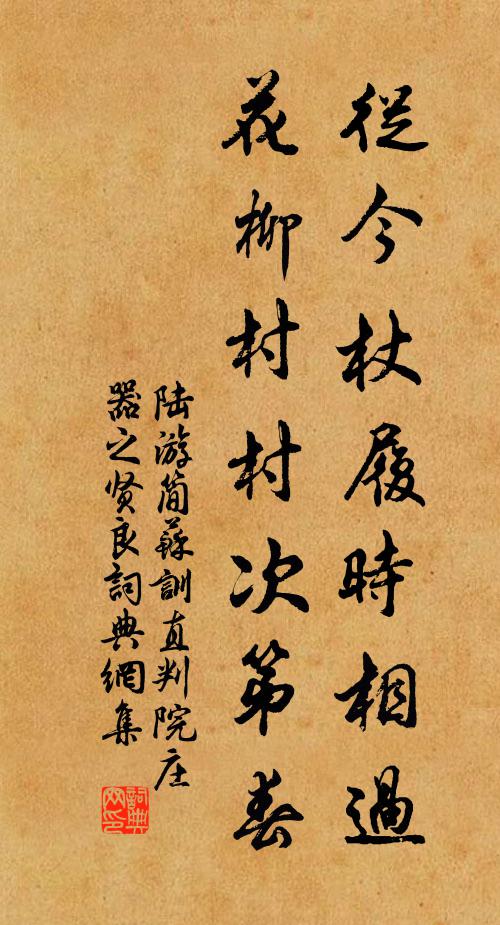 從今杖履時相過
花柳村村次第春
陆游简蘇訓直判院庄
器之贤良詞典網集
詞典网印